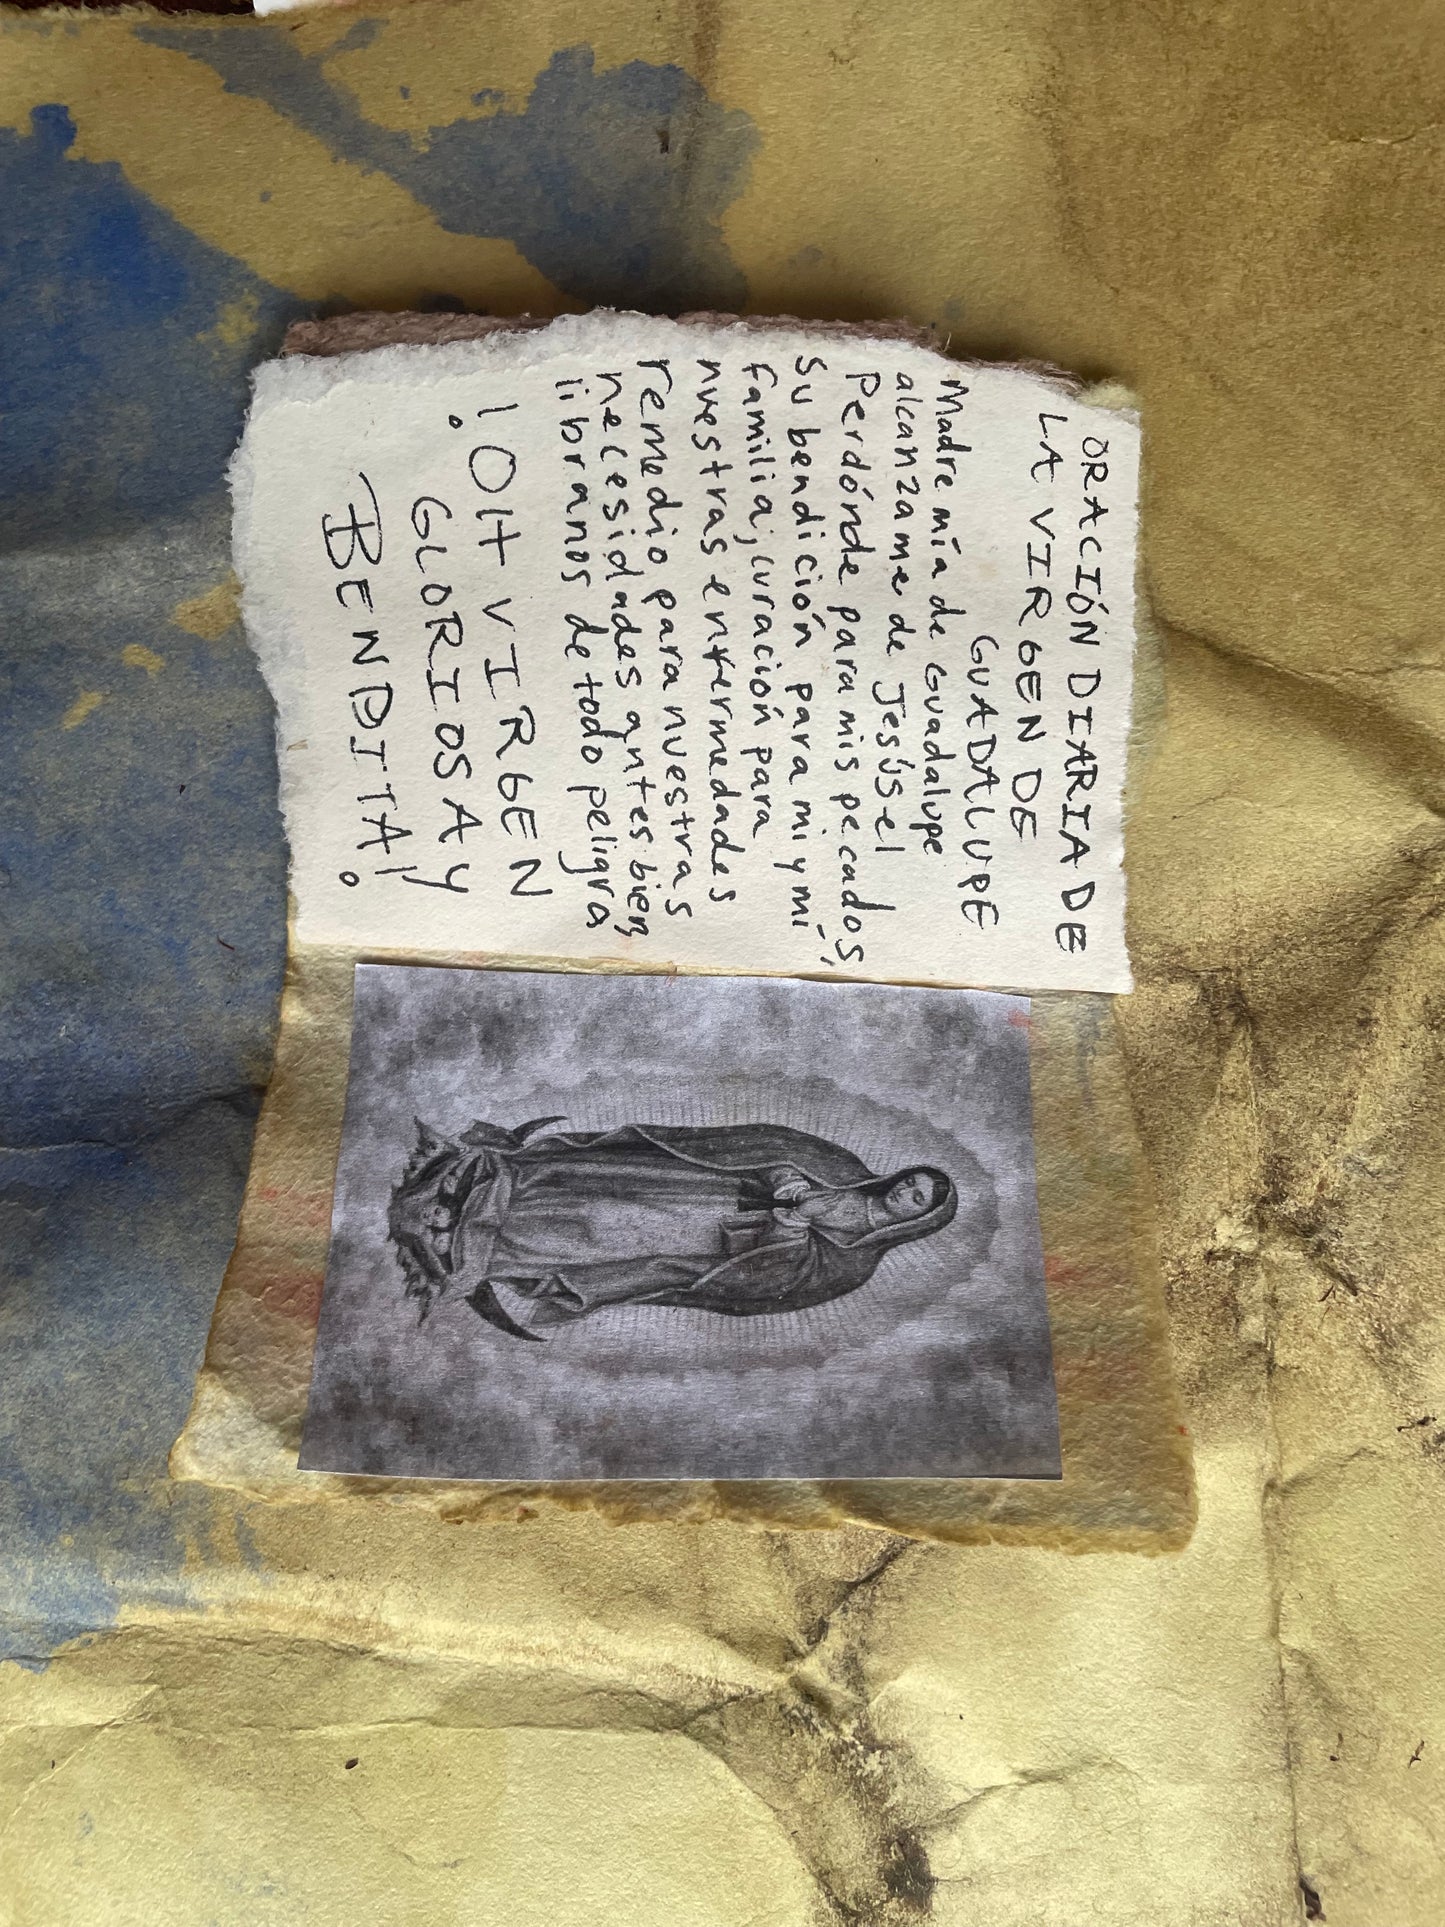 ORACIÓN DIARIA DE
LA VIRGEN DE
GUADALUPE
Madre mía de Guadalupe
alcanzame de Jesús el
Perdónde para mis pecados,
su bendición para mi y mí
familia; curación para
nuestras enfermedades
remedio para nuestras
necesidades antes bien,
libranos de todo peligra
¡OH VIRGEN
GLORIOSA Y
BENDITA!